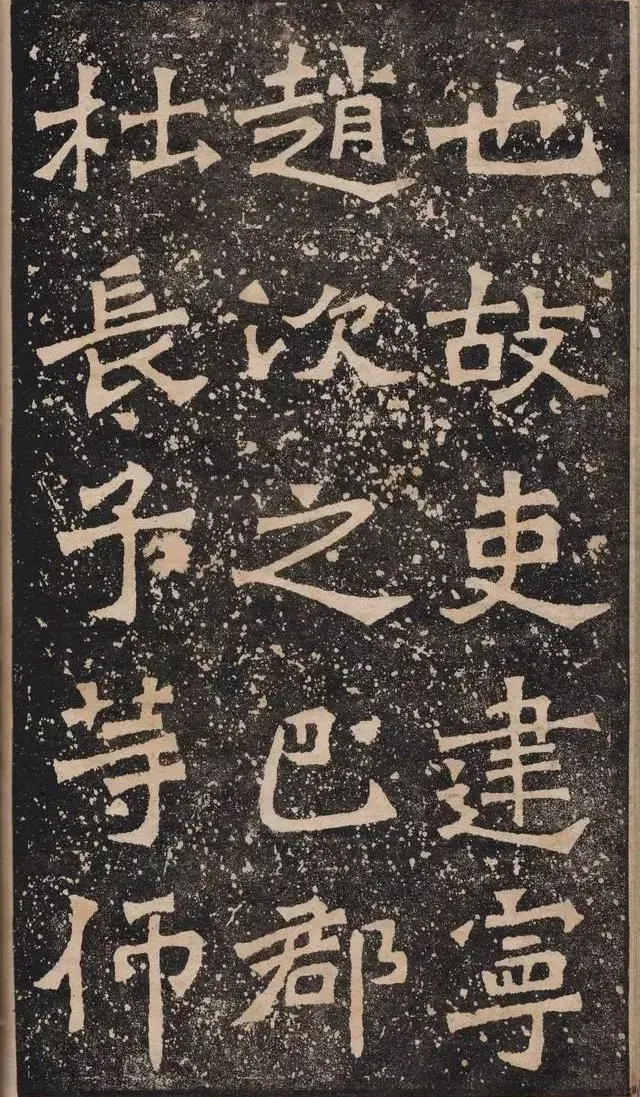 也故吏建寧
趙次之巴郡
杜長子等仰